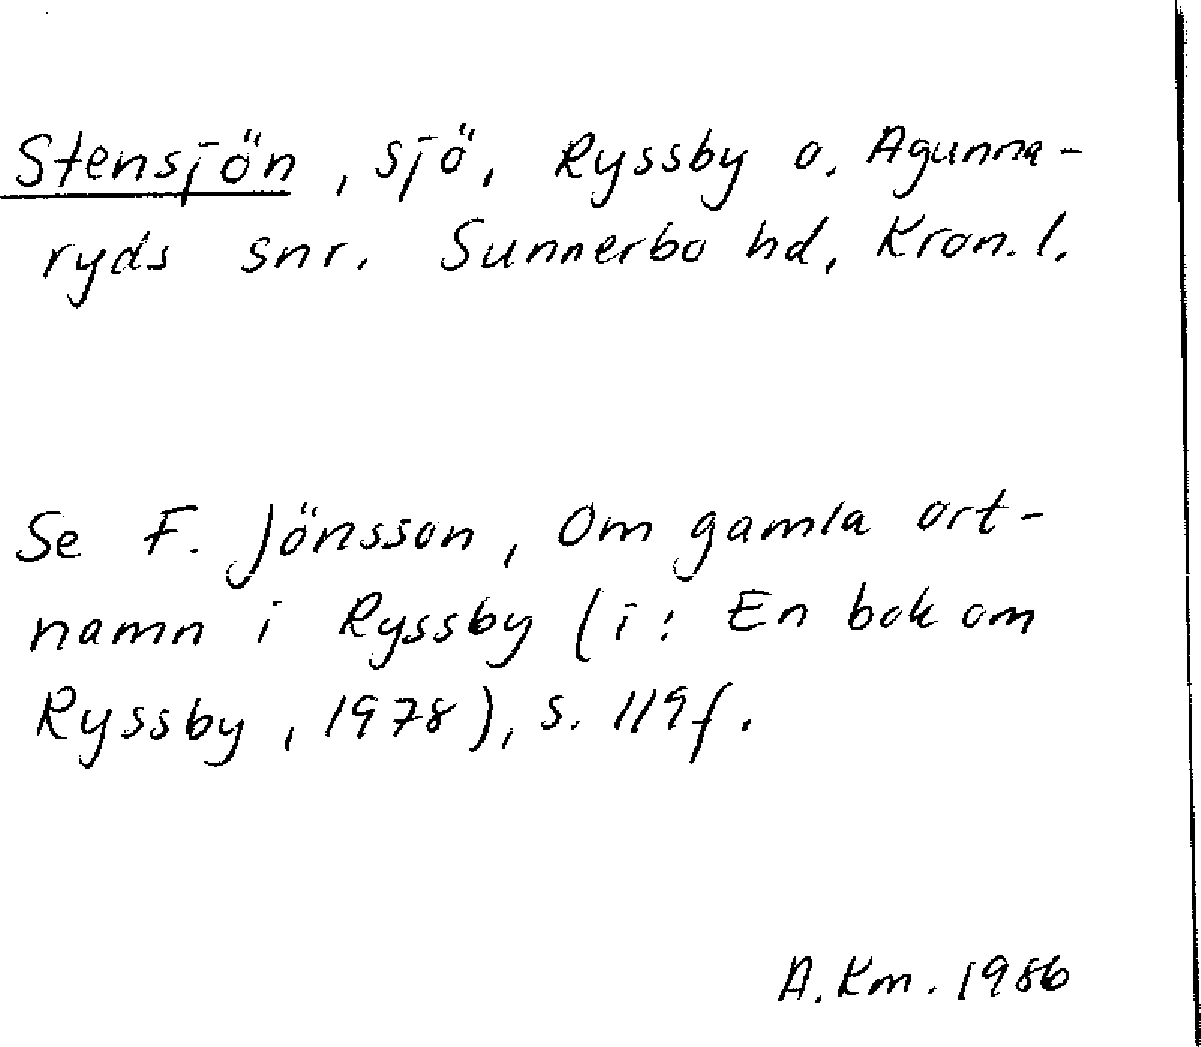 Stensjön, sjö, Ryssby o. Agunna-
ryds snr. Sunnerbo hd, Kron. l.
Se F. Jönsson, Om gamla ort-
namn i Ryssby (i: En bok om
Ryssby, 1978), s. 119f.
A. Km. 1986